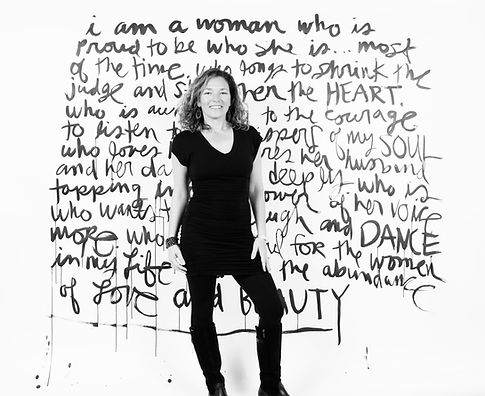 i am a woman who is
proud to be who she is... most
of the time, who longs to shrink the
judge and her the HEART.
who is to the courage
to listen of my SOUL
who loves her husband
and her deeply who is
tapping in power of her voice
who wants and DANCE
more who for the women
in my life the abundance
of LOVE and BEAUTY